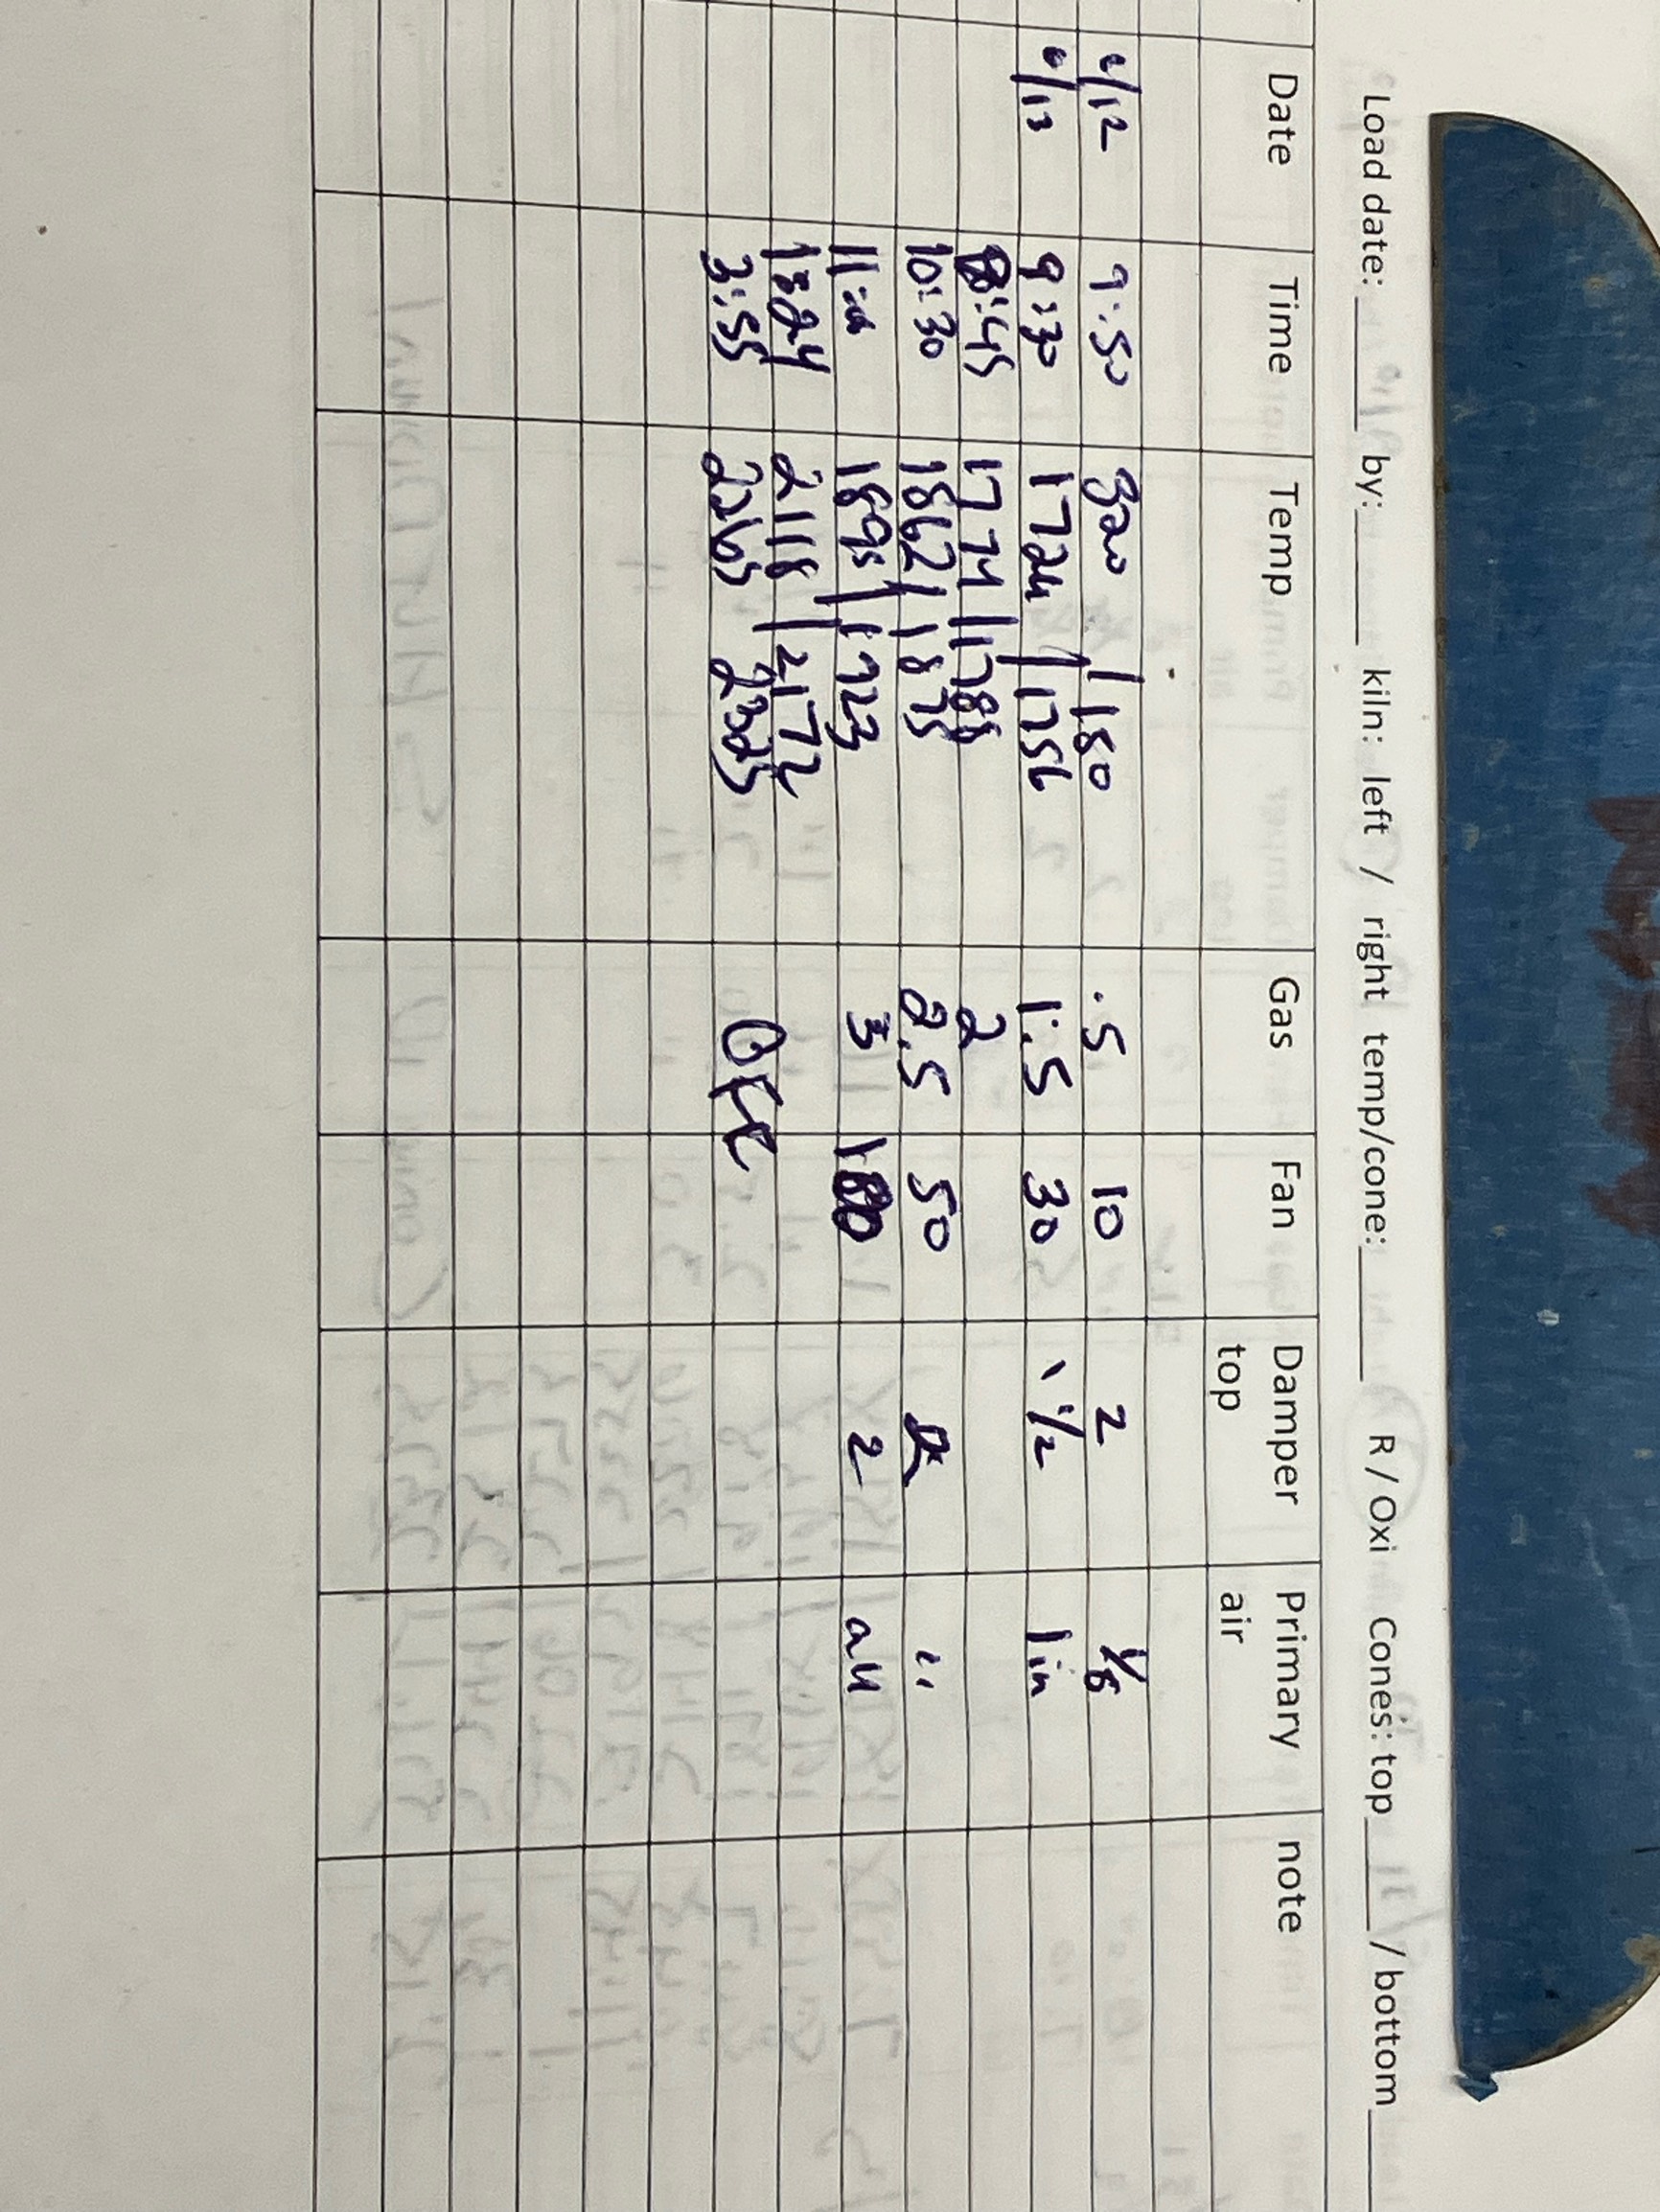 Load date: by: kiln: left / right temp/cone: R / Oxi Cones: top / bottom
Date Time Temp Gas Fan Damper top Primary air note
/12 9:50 320 / 180 .5 10 2 1/8
/13 9:30 172 / 1756 1.5 30 1 1/2 1in
:45 1774 / 1788 2
10:30 1862 / 1875 2.5 50 "
11: 1895 / 1923 3 2 all
2118 / 2172
3:55 2265 2325 Off